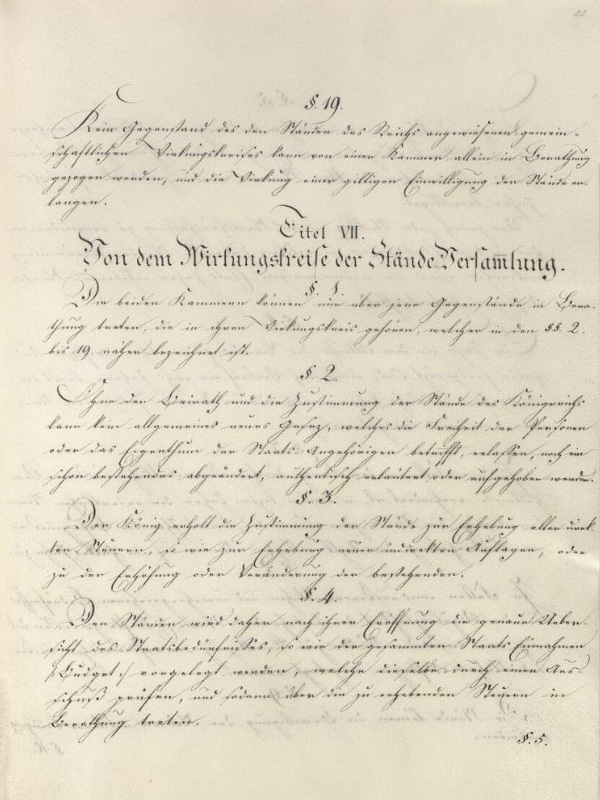 §. 19.
Kein Gegenstand des den Ständen des Reichs angewiesenen gemein-
schaftlichen Wirkungskreises kann von einer Kammer allein in Berathung
gezogen werden, und die Wirkung einer giltigen Einwilligung der Stände er-
langen.
Titel VII.
Von dem Wirkungskreise der Stände-Versamlung.
§. 1.
Die beiden Kammern können nur über jene Gegenstände in Bera-
thung treten, die in ihren Wirkungskreis gehören, welcher in den §§. 2.
bis 19. näher bezeichnet ist.
§. 2.
Ohne den Beirath und die Zustimmung der Stände des Königreichs
kann kein allgemeines neues Gesez, welches die Freiheit der Personen
oder das Eigenthum der Staats-Angehörigen betrifft, erlassen, noch ein
schon bestehendes abgeändert, authentisch erläutert oder aufgehoben werden.
§. 3.
Der König erholt die Zustimmung der Stände zur Erhebung aller direk-
ten Steuern, so wie zur Erhebung neuer indirekten Auflagen, oder
zu der Erhöhung oder Veränderung der bestehenden.
§. 4.
Den Ständen wird daher nach ihrer Eröffnung die genaue Ueber-
sicht des Staatsbedürfnisses, so wie der gesammten Staats-Einnahmen
/: Budget :/ vorgelegt werden, welche dieselbe durch einen Aus-
schuß prüfen, und sodann über die zu erhebenden Steuern in
Berathung treten.
§. 5.